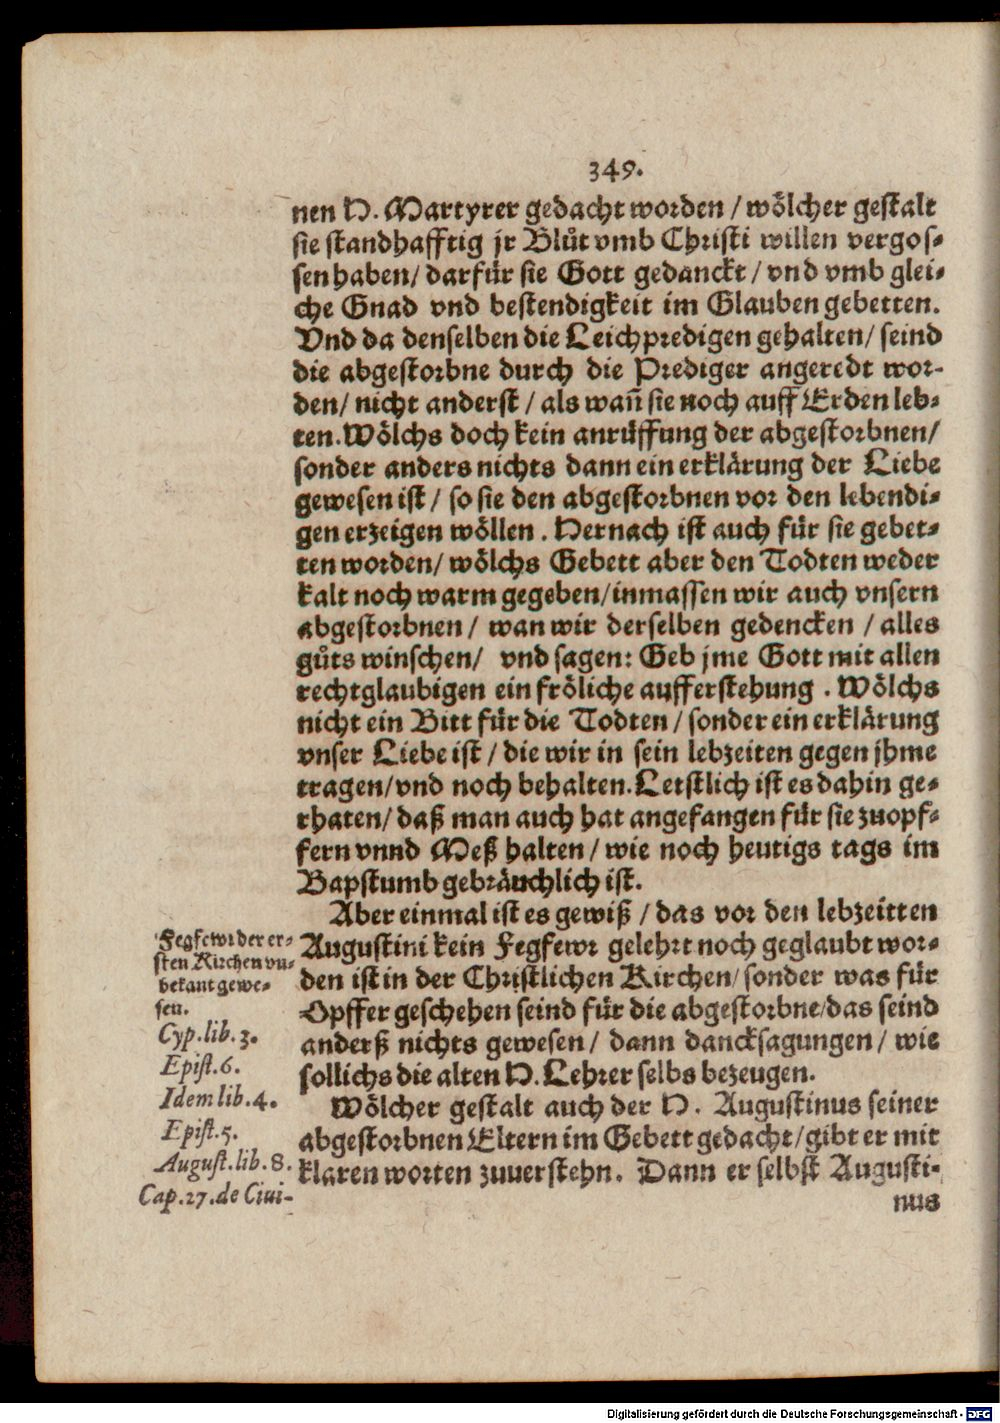 349.
nen H. Martyrer gedacht worden / wölcher gestalt
sie standhafftig jr Blůt vmb Christi willen vergos-
sen haben / darfür sie Gott gedanckt / vnd vmb glei-
che Gnad vnd bestendigkeit im Glauben gebetten.
Vnd da denselben die Leichpredigen gehalten / seind
die abgestorbne durch die Prediger angeredt wor-
den / nicht anderst / als wañ sie noch auff Erden leb-
ten. Wölchs doch kein anrüffung der abgestorbnen /
sonder anders nichts dann ein erklärung der Liebe
gewesen ist / so sie den abgestorbnen vor den lebendi-
gen erzeigen wöllen. Hernach ist auch für sie gebet-
ten worden / wölchs Gebett aber den Todten weder
kalt noch warm gegeben / inmassen wir auch vnsern
abgestorbnen / wan wir derselben gedencken / alles
gůts winschen / vnd sagen: Geb jme Gott mit allen
rechtglaubigen ein fröliche aufferstehung. Wölchs
nicht ein Bitt für die Todten / sonder ein erklärung
vnser Liebe ist / die wir in sein lebzeiten gegen jhme
tragen / vnd noch behalten. Letstlich ist es dahin ge-
rhaten / daß man auch hat angefangen für sie zuopf-
fern vnnd Meß halten / wie noch heutigs tags im
Bapstumb gebräuchlich ist.
Aber einmal ist es gewiß / das vor den lebzeitten
Augustini kein Fegfewr gelehrt noch geglaubt wor-
den ist in der Christlichen Kirchen / sonder was für
Opffer geschehen seind für die abgestorbne / das seind
anderß nichts gewesen / dann dancksagungen / wie
sollichs die alten H. Lehrer selbs bezeugen.
Wölcher gestalt auch der H. Augustinus seiner
abgestorbnen Eltern im Gebett gedacht / gibt er mit
klaren worten zuuerstehn. Dann er selbst Augusti-
nus
Fegfewr der er-
sten Kirchen vn-
bekant gewe-
sen.
Cyp. lib. 3.
Epist. 6.
Idem lib. 4.
Epist. 5.
August. lib. 8.
Cap. 27. de Ciui-
Digitalisierung gefördert durch die Deutsche Forschungsgemeinschaft - DFG